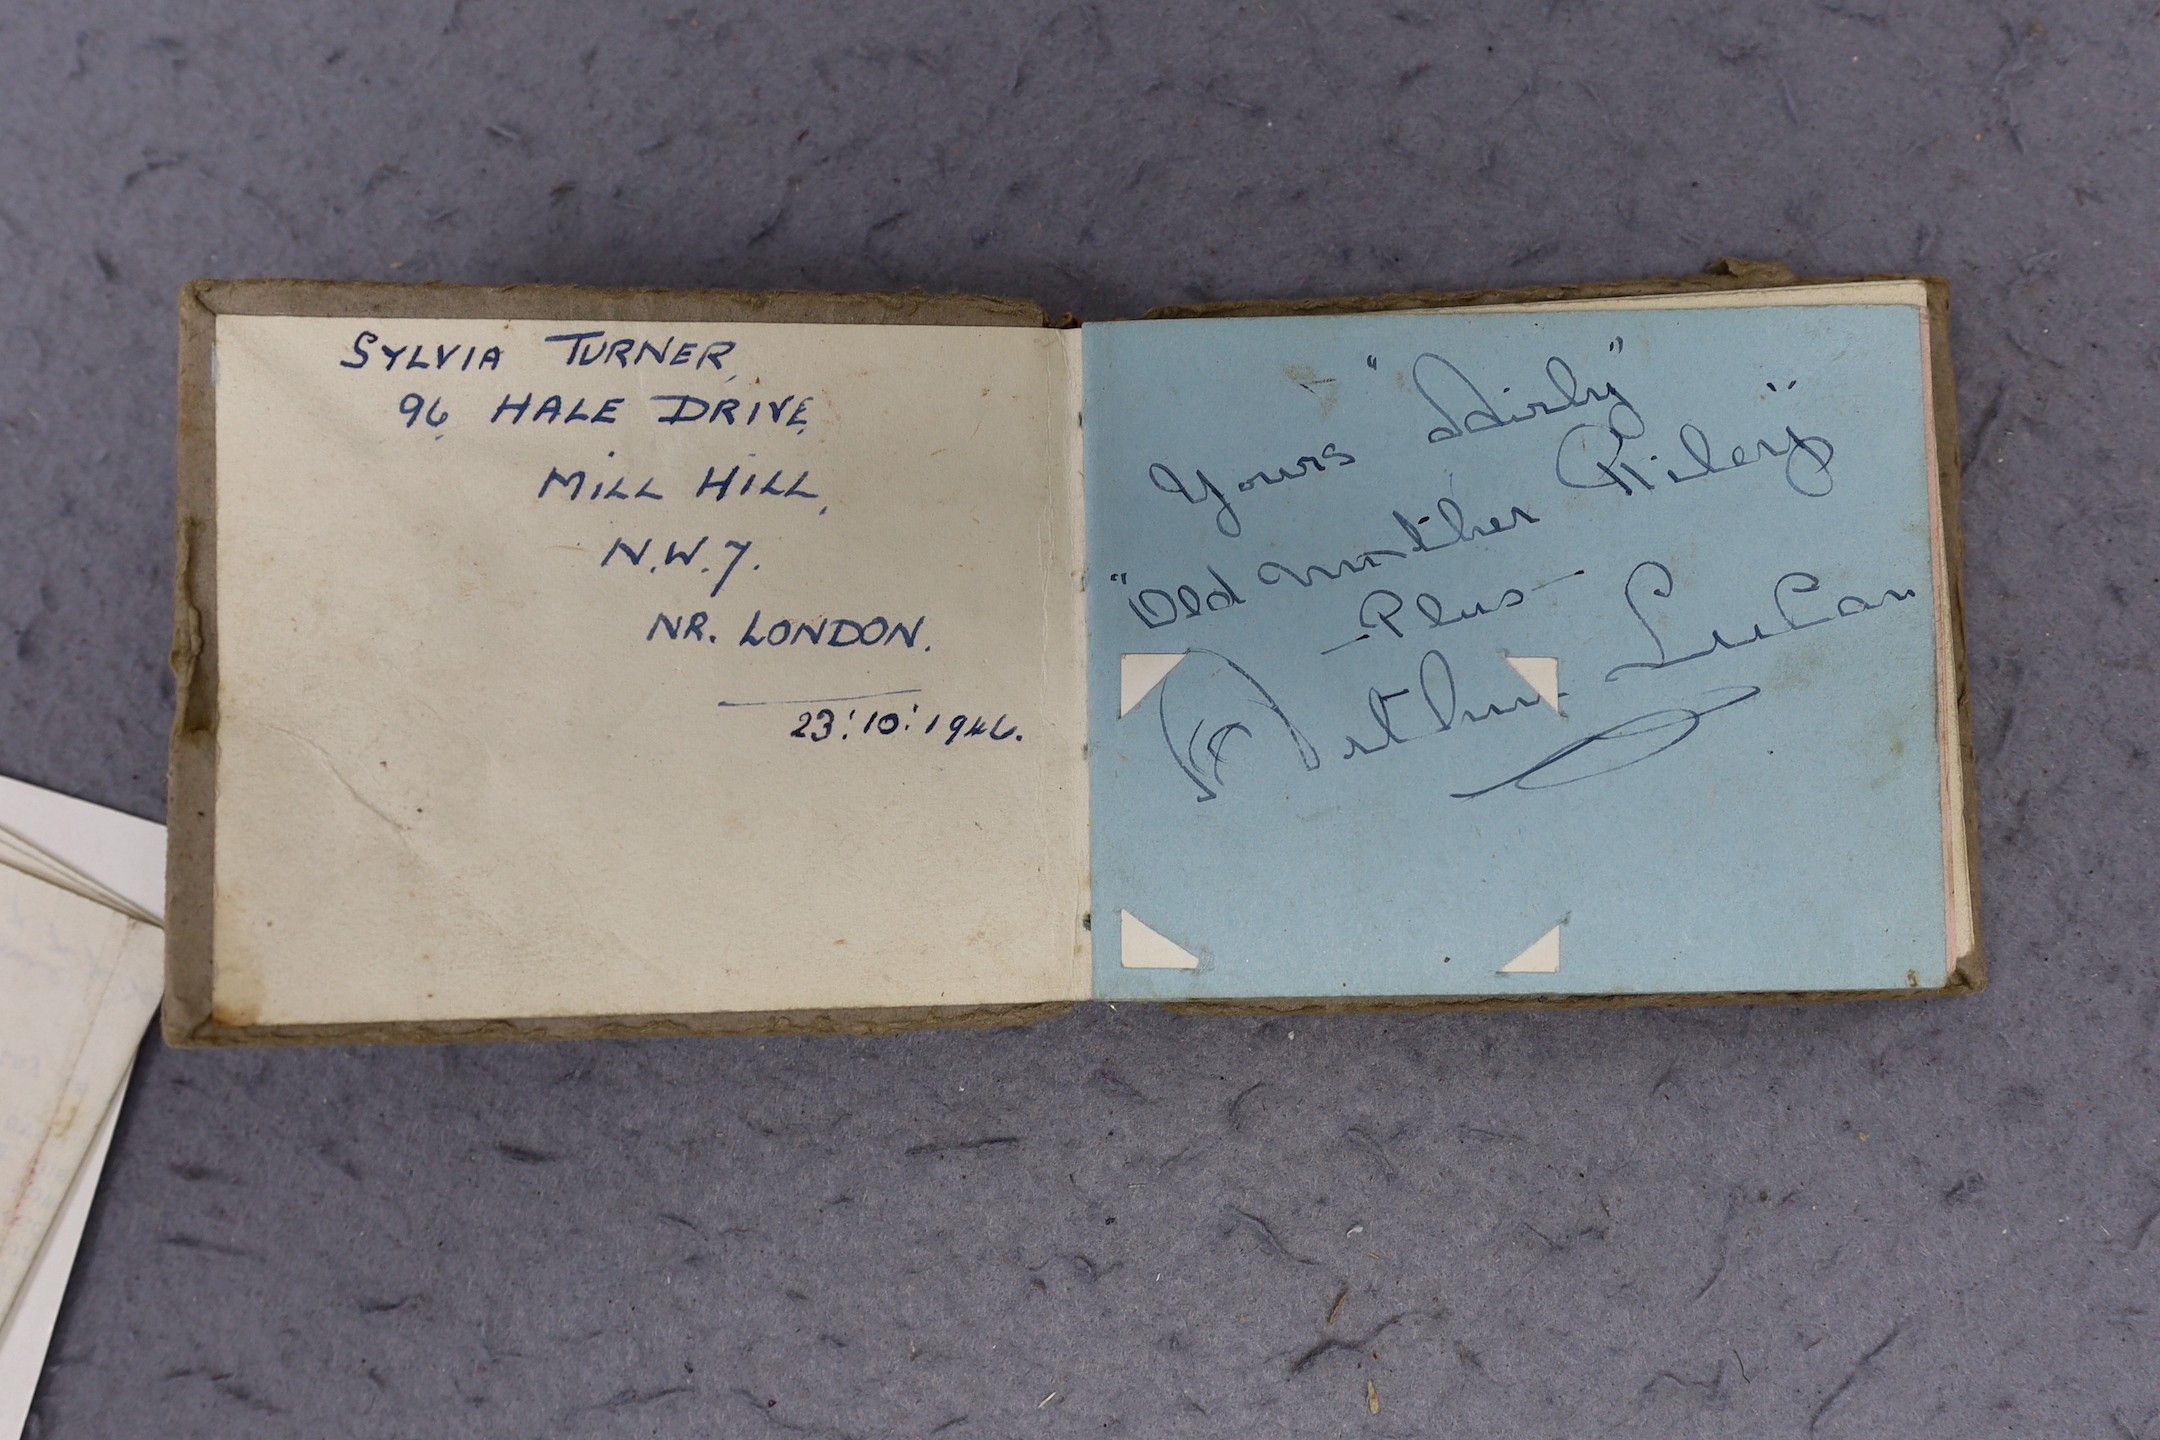 SYLVIA TURNER,
96, HALE DRIVE,
MILL HILL,
N.W.7.
NR. LONDON.
23:10:1946.
Yours "Dirly"
"Old Mother Riley"
-Plus-
Arthur Lucan